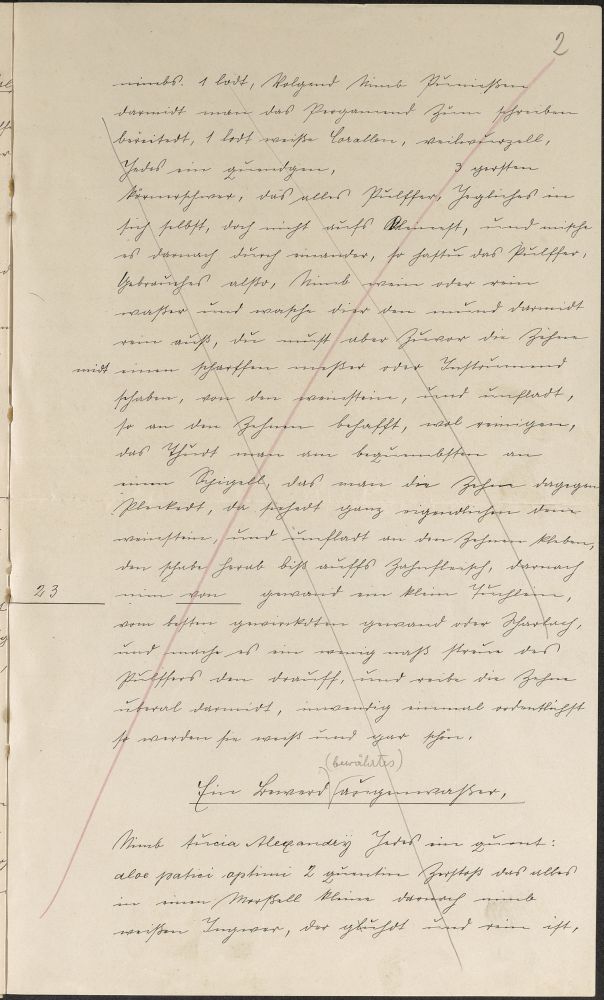 2
nimbs. 1 lodt, Volgend Nimb Pimießen
darmidt man das Pergamend zum schreiben
bereitedt, 1 lodt weiße Corallen, veilwurzell,
Jedes ein quendgen, 3 gersten
körnerschwer, das alles Pulffer, Jegliches in
sich selbst, doch nicht aufs kleinest, und mische
es darnach durch einander, so hastu das Pulffer,
Gebrauches alßo, Nimb wein oder rein
waßer und wasche dier den mund darmidt
rein auß, du must aber zuvor die Zehne
midt einem scharffen meßer oder Instrumend
schaben, von den weinstein, und unfladt,
so an den Zehnen behafft, wol reinigen,
das Thudt man am bequembsten an
einem Spigell, das man die Zehne dagegen
Pleckedt, da sichedt ganz eigendlichen den
weinstein, und unfladt an den Zehnen kleben,
den schabe herab biß auffs Zahnfleisch, darnach
23
nim von gewand ein klein Tuchlein,
vom besten gewirckdten gewand oder Scharlach,
und mache es ein wenig naß streue des
Pulffers den drauff, und reibe die Zehne
uberal darmidt, inwendig einmal ordentlichst
so werden sie weiß und gar schön.
(bewährtes)
Ein Bewerd augenwaßer,
Nimb tucia Alexandry Jedes ein quent:
aloe patici optimi 2 quentin Zerstoß das alles
in einem Morßell kleine darnach nimb
weißen Ingwer, der gluhdt und rein ist,